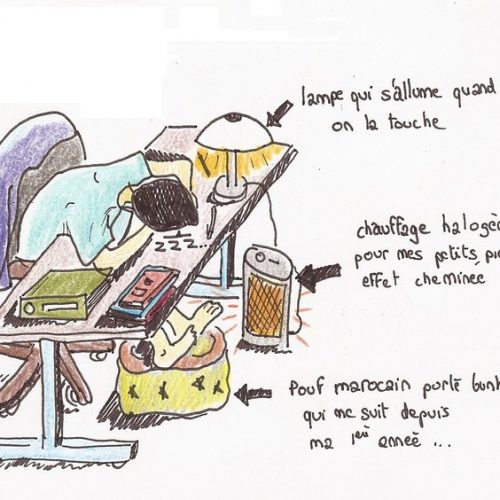 lampe qui s'allume quand
on la touche
zzz...
chauffage halogè
pour mes petits pie
effet cheminée
Pouf marocain porte bonh
qui me suit depuis
ma 1ère année ...